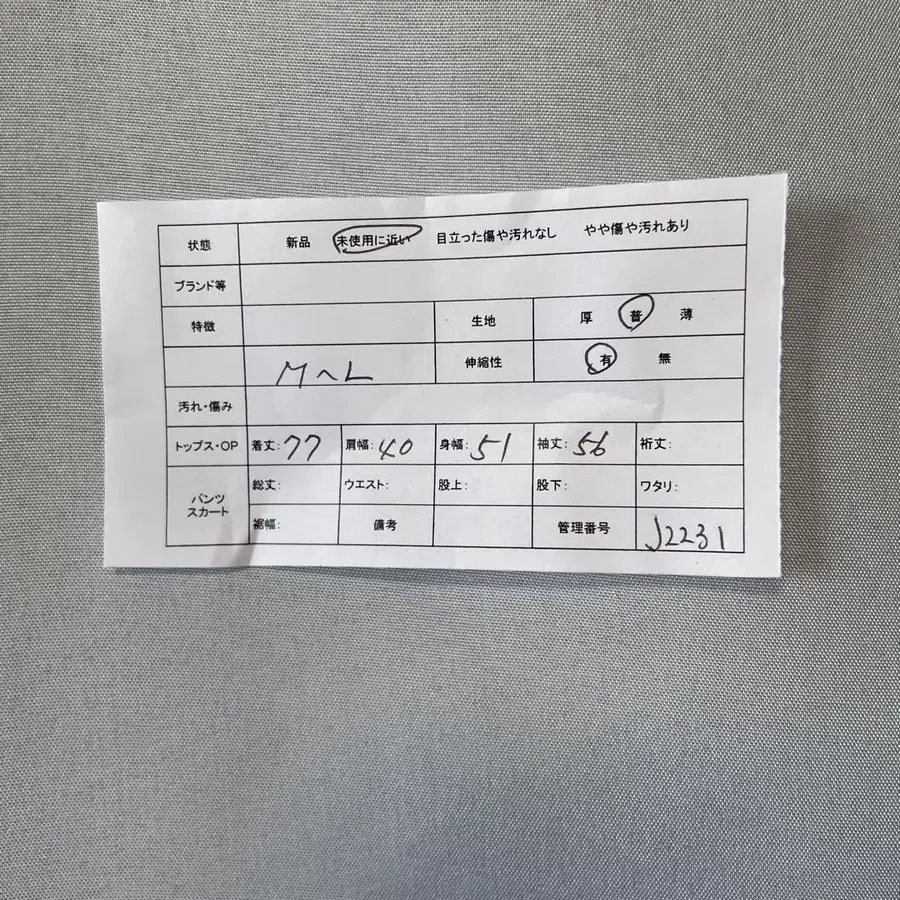 状態 新品 未使用に近い 目立った傷や汚れなし やや傷や汚れあり
ブランド等
特徴 生地 厚 普 薄
M～L 伸縮性 有 無
汚れ・傷み
トップス・OP 着丈:77 肩幅:40 身幅:51 袖丈:56 裄丈:
パンツ
スカート
総丈: ウエスト: 股上: 股下: ワタリ:
裾幅: 備考 管理番号 J2231